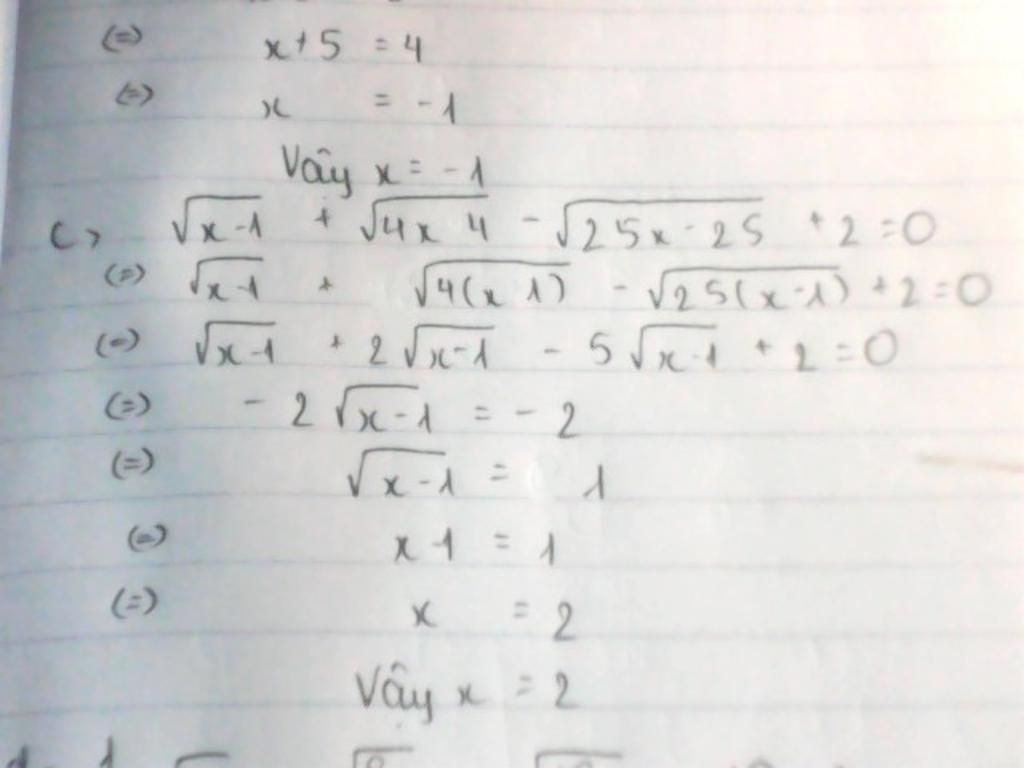 (=) x+5 = 4
(=) x = -1
Vậy x = -1
c, √(x-1) + √(4x 4) - √(25x-25) + 2 = 0
(=) √(x-1) + √(4(x 1)) - √(25(x-1)) + 2 = 0
(=) √(x-1) + 2√(x-1) - 5√(x-1) + 2 = 0
(=) - 2√(x-1) = - 2
(=) √(x-1) = 1
(=) x-1 = 1
(=) x = 2
Vậy x = 2